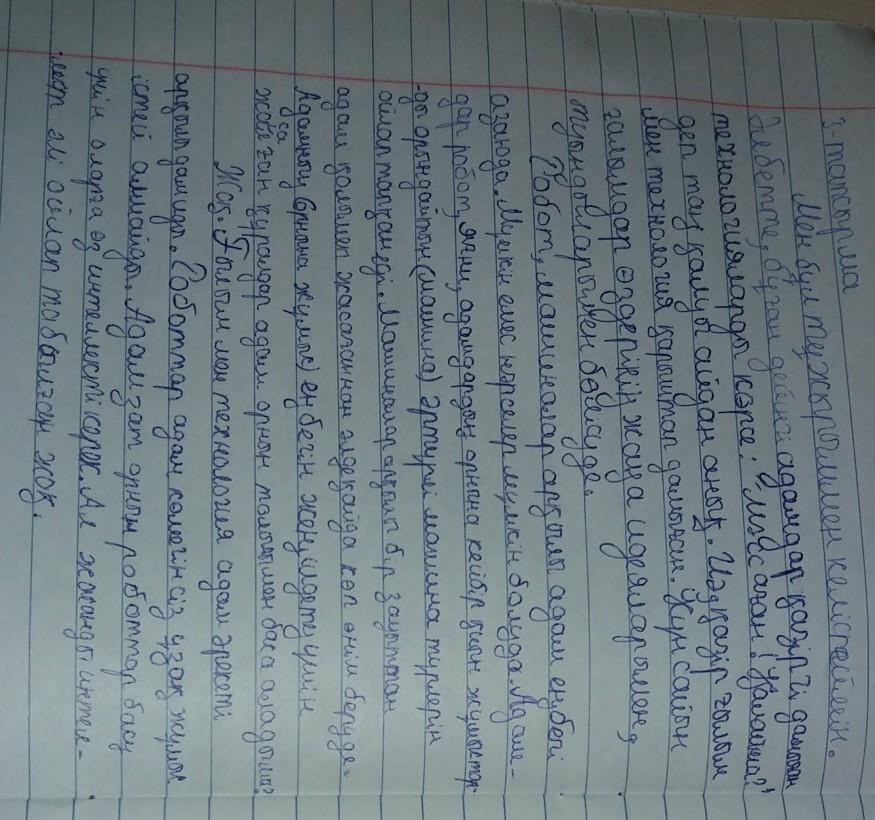 3-тапсырма
Мен бұл тұжырыммен келіспеймін.
Әлбетте, бұған дейінгі адамдар қазіргі дамыған
технологияларды көрсе: "Масқаған! Ұғамына?"
деп таң қалуы айдан анық. Иә, қазір ғылым
мен технология қарыштап дамыған. Күн сайын
ғалымдар өздерінің жаңа идеяларымен,
туындыларымен бөлісуде.
Робот, машиналар арқылы адам еңбегі
азаюда. Мүмкін емес нәрселер мүмкін болуда. Адам-
дар робот, яғни, адамдардың орнына кейбір қиын жұмыстар-
ды орындайтын (машина) әртүрлі машина түрлерін
ойлап тапқан еді. Машиналар арқылы бір зауыттан
адам қолымен жасағаннан әлдеқайда көп өнім беруде.
Адамның (орнына жұмыс) еңбегін жеңілдету үшін
жасаған құралдар адам орнын толығымен баса алады ма?
Жоқ. Ғылым мен технология адам әрекеті
арқылы дамиды. Роботтар адам көмегінсіз ұзақ жұмыс
істей алмайды. Адамзат орнын роботтар басу
үшін оларға өз интеллекті керек. Ал жасанды интел-
лект әлі ойлап табылған жоқ.